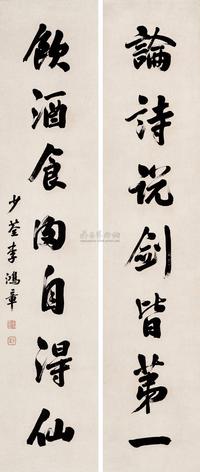 論詩說劍皆第一
飲酒食肉自得仙
少荃李鴻章